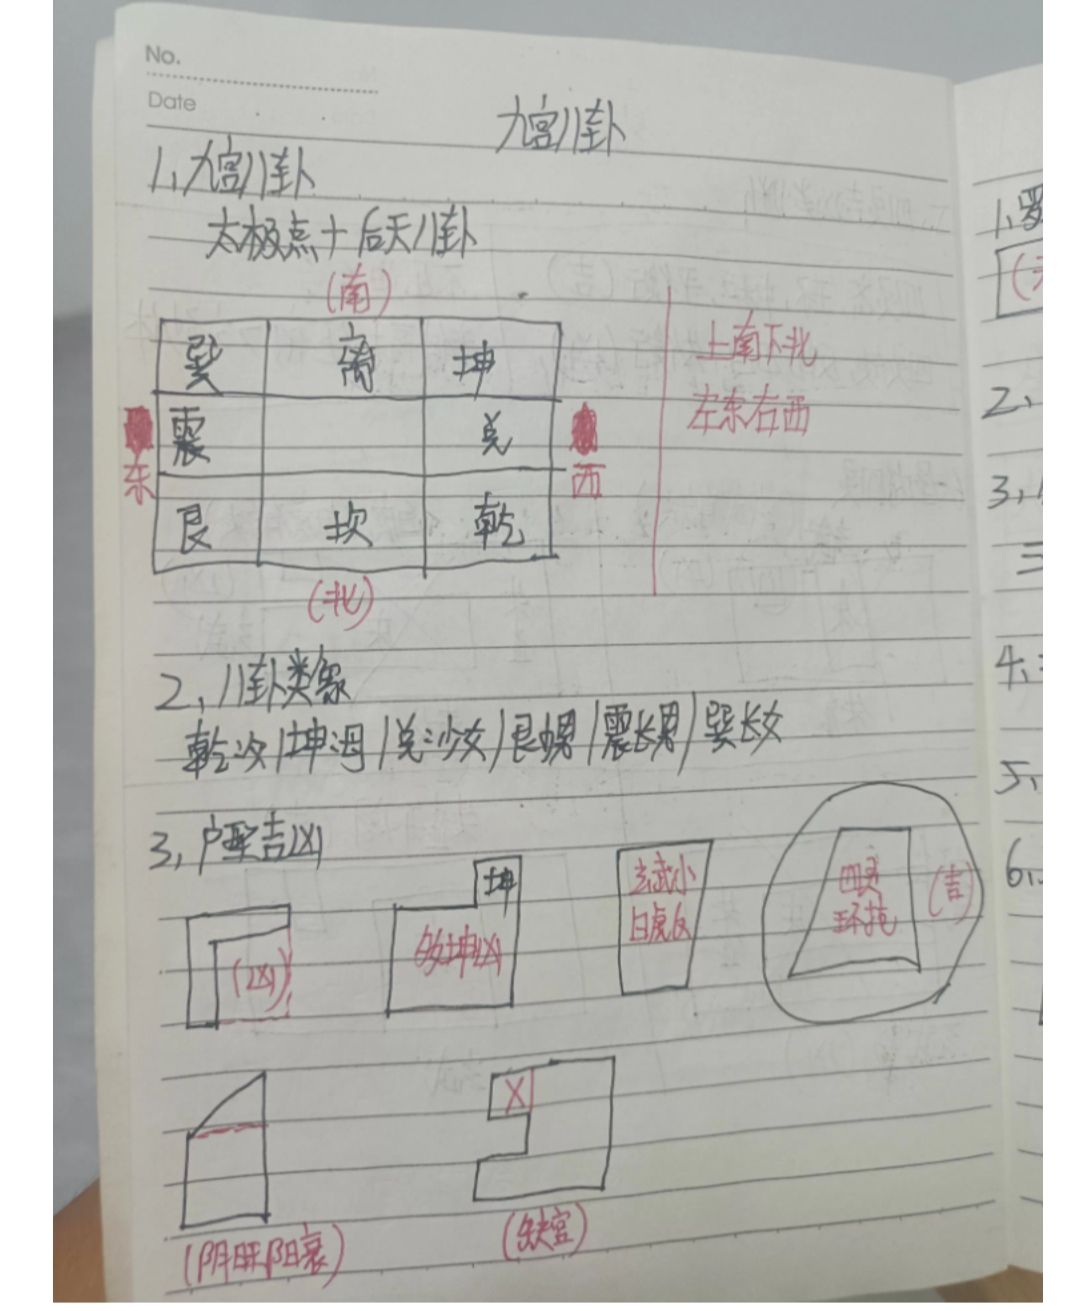 No.
Date
九宫八卦
1、九宫八卦
太极点十后天八卦
(南)
巽 离 坤
震 兑
艮 坎 乾
东
西
(北)
上南下北
左东右西
2、八卦类象
乾父|坤母|兑少女|艮男|震长男|巽长女
3、户型吉凶
(凶)
坤
坤凶
玄武小
白虎
四灵
环抱
(吉)
X
(阴旺阳衰)
(缺宫)
1、罗
2、
3、
三
4、
5、
6、